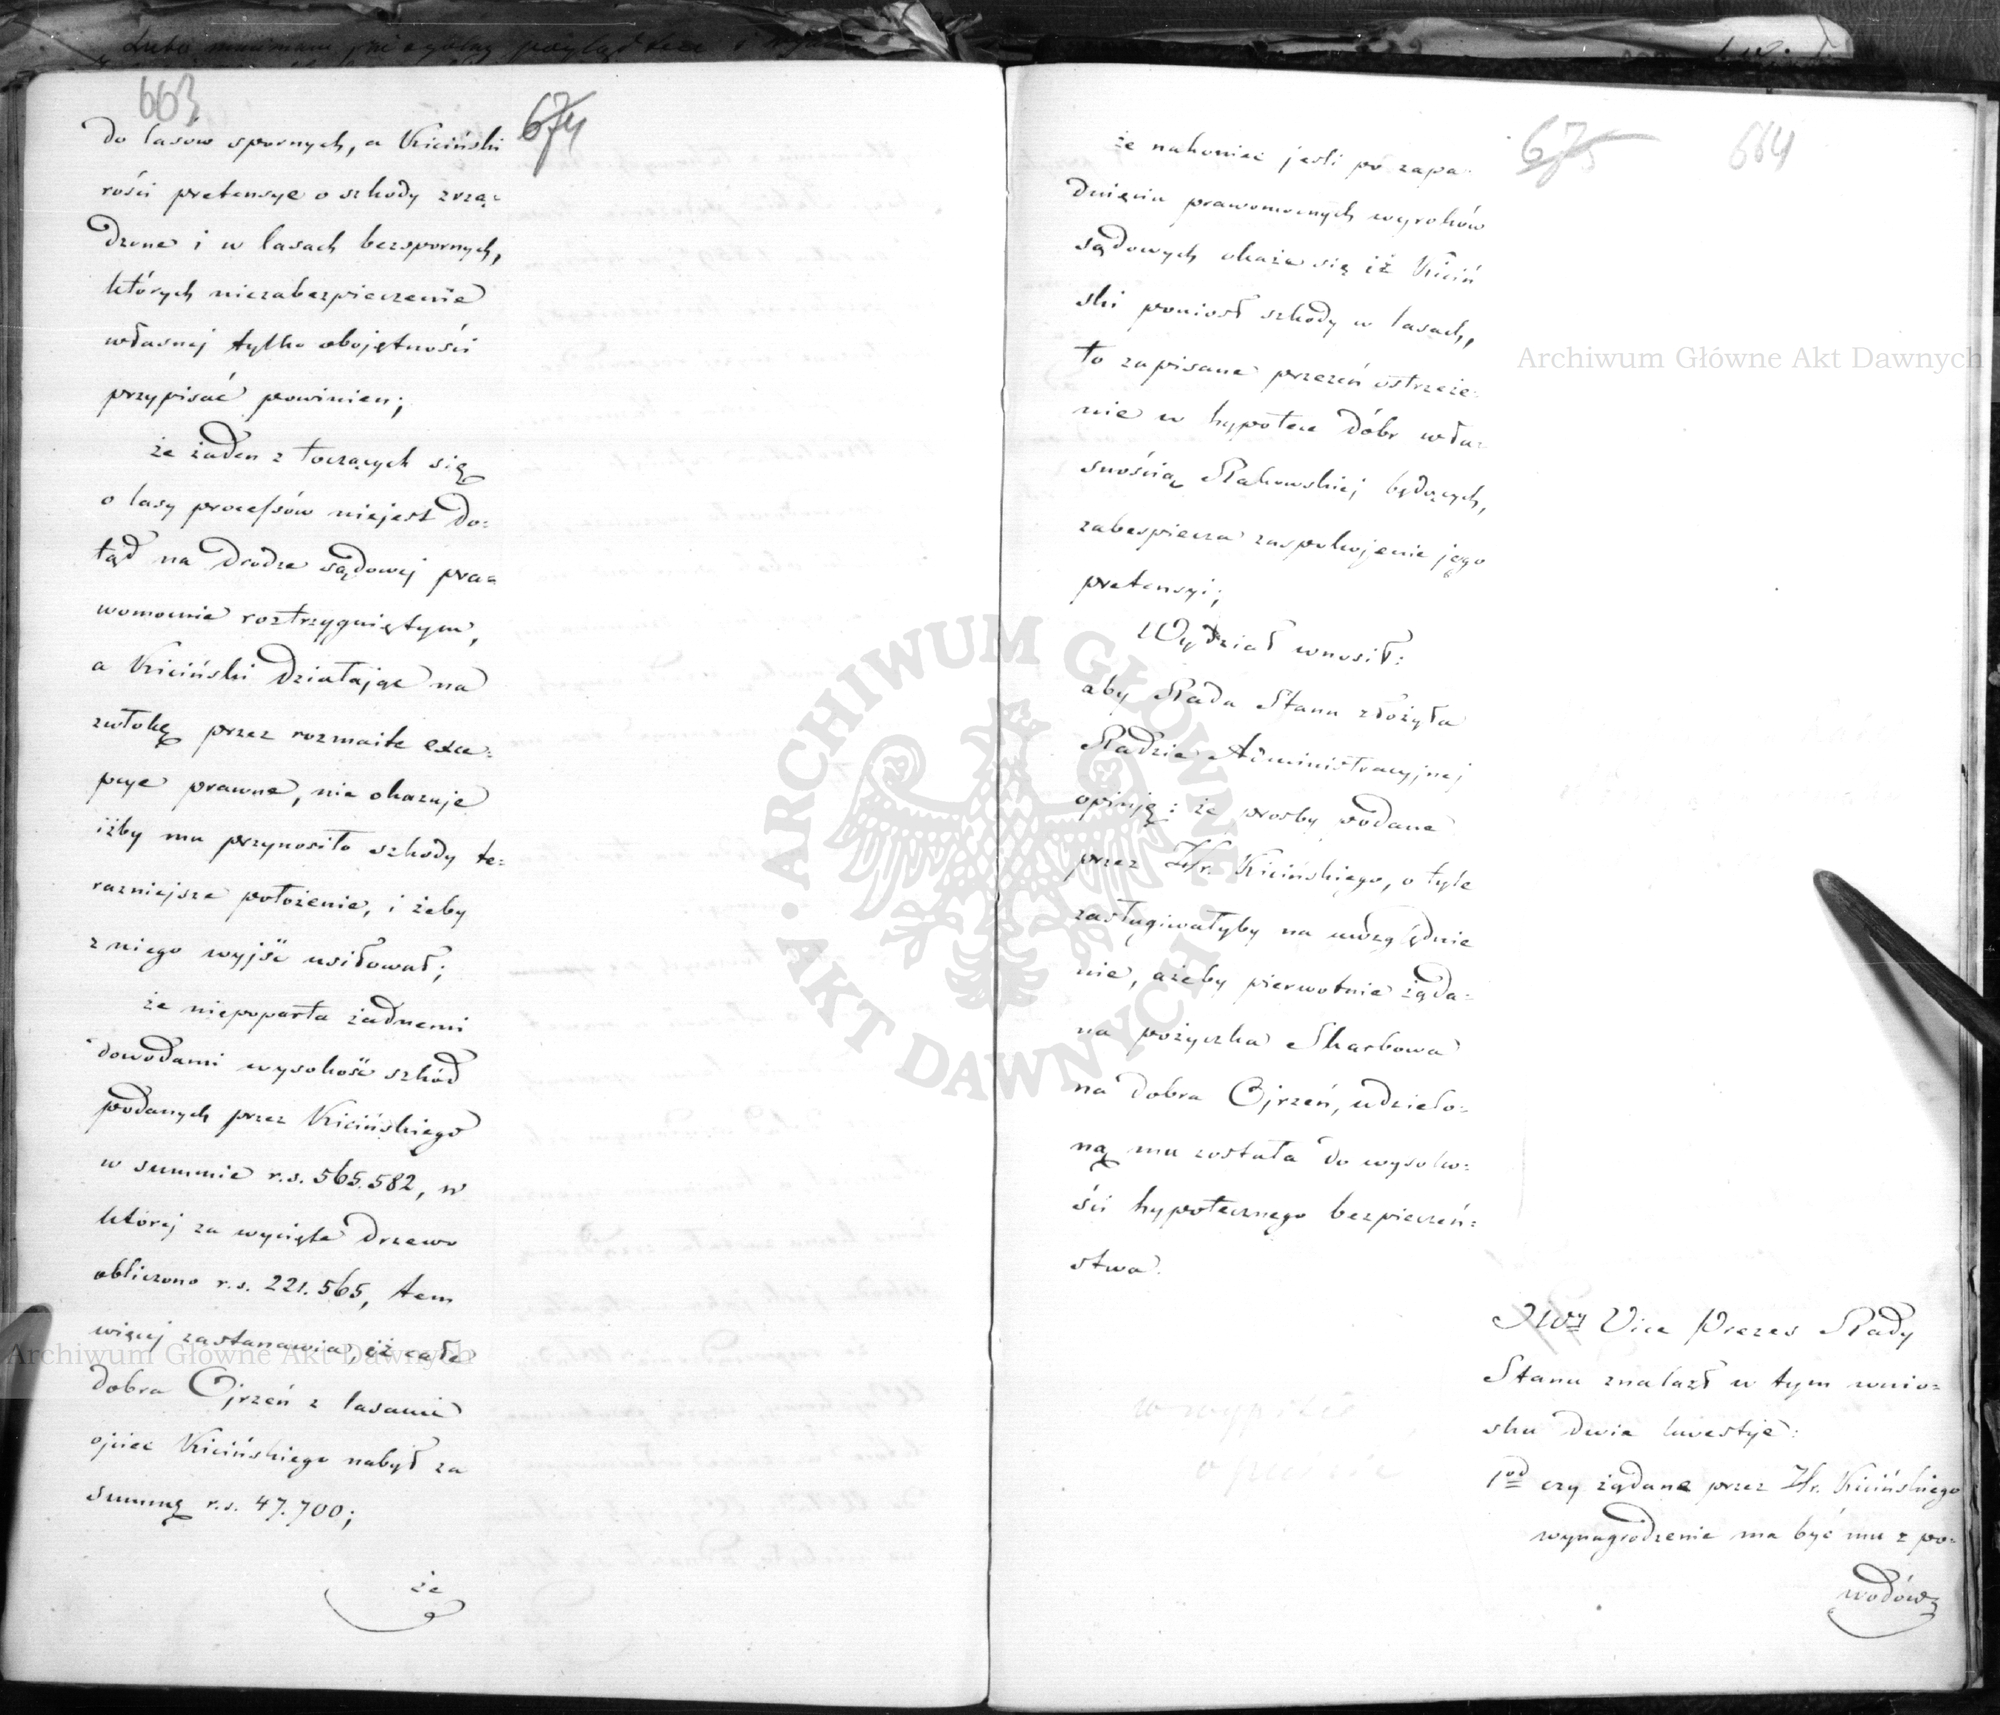 663
674
do lasów spornych, a Kiciński
rości pretensye o szkody zrzą-
dzone i w lasach bezspornych,
których niezabezpieczenie
własnej tylko obojętności
przypisać powinien;
że żaden z toczących się
o lasy processów niejest do-
tąd na drodze sądowej pra-
womocnie roztrzygniętym,
a Kiciński działając na
zwłokę przez rozmaite exce-
pcye prawne, nie okazuje
iżby mu przynosiło szkody te-
razniejsze położenie, i żeby
z niego wyjść usiłował;
że niepoparta żadnemi
dowodami wysokość szkód
podanych przez Kicińskiego
w summie r.s. 565.582, w
której za wycięte drzewo
obliczono r.s. 221.565, tem
więcej zastanawia, iż całe
dobra Ojrzeń z lasami
ojciec Kicińskiego nabył za
summę r.s. 47.700;
że
675
664
że nakoniec jeśli po zapa-
dnięciu prawomocnych wyroków
sądowych okaże się iż Kiciń
ski poniosł szkody w lasach,
to zapisane przezeń ostrzeże-
nie w hypotece dóbr wła-
snością Rakowskiej będących,
zabespiecza zaspokojenie jego
pretensyi;
Wydział wnosił:
aby Rada Stanu złożyła
Radzie Administracyjnej
opinję: że prosby podane
przez Hr. Kicińskiego, o tyle
zasługiwałyby na uwzględnie
nie, ażeby pierwotnie żąda-
na pożyczka Skarbowa
na dobra Ojrzeń, udzielo-
ną mu została do wysoko-
ści hypotecznego bezpieczeń-
stwa.
w wypisie
opuścić
JWny Vice Prezes Rady
Stanu znalazł w tym wnio-
sku dwie kwestje:
1od czy żądane przez Hr. Kicińskiego
wynagrodzenie ma być mu z po-
wodów
Archiwum Główne Akt Dawnych
Archiwum Główne Akt Dawnych
ARCHIWUM GŁÓWNE · AKT DAWNYCH ·